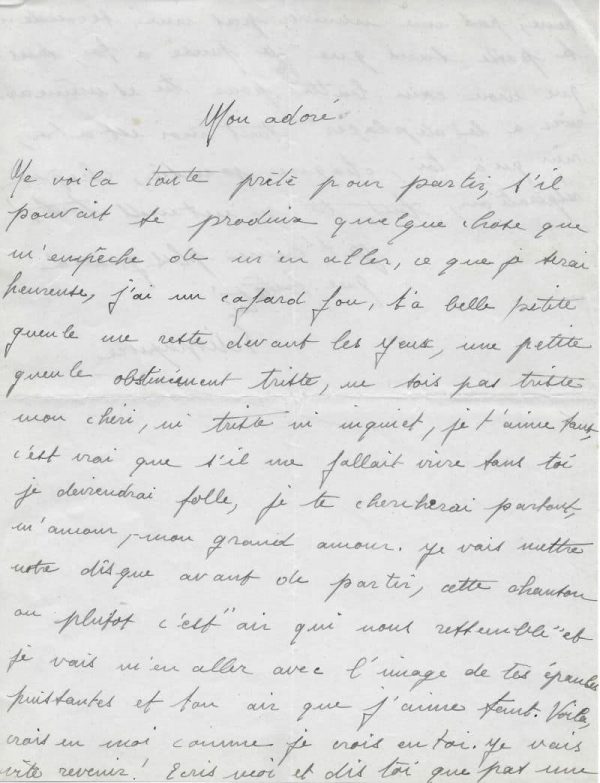 Mon adoré.
Me voila toute prête pour partir, s'il
pouvait se produire quelque chose que
m'empêche de m'en aller, ce que je serai
heureuse, j'ai un cafard fou, ta belle petite
gueule me reste devant les yeux, une petite
gueule obstinément triste, ne sois pas triste
mon chéri, ni triste ni inquiet, je t'aime tant,
c'est vrai que s'il me fallait vivre sans toi
je deviendrai folle, je te chercherai partout,
m'amour, mon grand amour. Je vais mettre
notre disque avant de partir, cette chanson
ou plutôt c'est "air qui nous ressemble" et
je vais m'en aller avec l'image de tes épaules
puissantes et ton air que j'aime tant. Voila,
crois en moi comme je crois en toi. Je vais
vite revenir! Ecris moi et dis toi que pas une